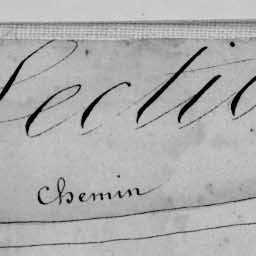 Sectio
Chemin